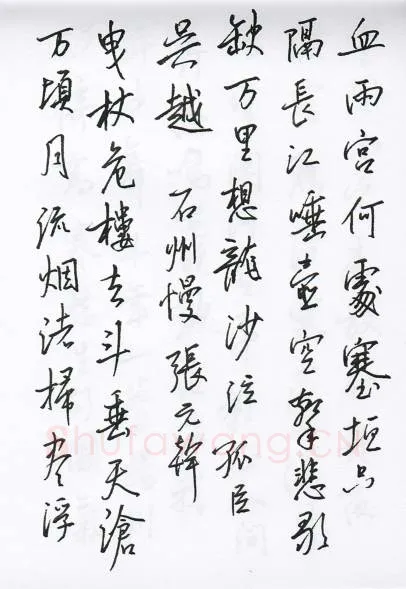 血兩宮何處塞垣只
隔長江唾壺空擊悲歌
缺万里想龍沙泣孤臣
吳越 石州慢 張元幹
曳杖危樓去斗垂天滄
万頃月流烟渚掃尽浮
Shufawang.CN